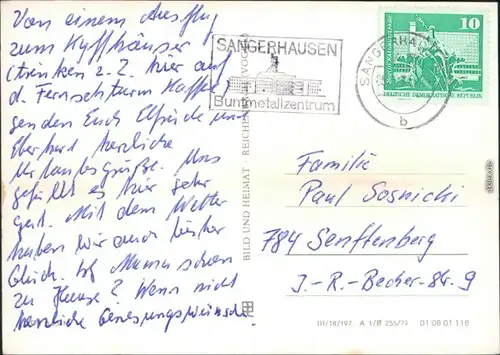 Von einem Ausflug
zum Kyffhäuser
(trinken z. Z. hier auf
d. Fernsehturm Kaffee)
senden Euch Elfriede und
Eberhard herzliche
Urlaubsgrüße. Uns
gefällt es hier sehr
gut. Mit dem Wetter
haben wir auch bisher
Glück. Ist Mama schon
zu Hause? Wenn nicht
herzliche Genesungswünsche.
SANGERHAUSEN
Buntmetallzentrum
SANGERHA
b
10
DEUTSCHE DEMOKRATISCHE REPUBLIK
BILD UND HEIMAT · REICHENBACH (VOGTL)
Familie
Paul Sosnicki
784 Senftenberg
J.-R.-Becher-Str. 9
III/18/197 A 1/B 255/79 01 08 01 118